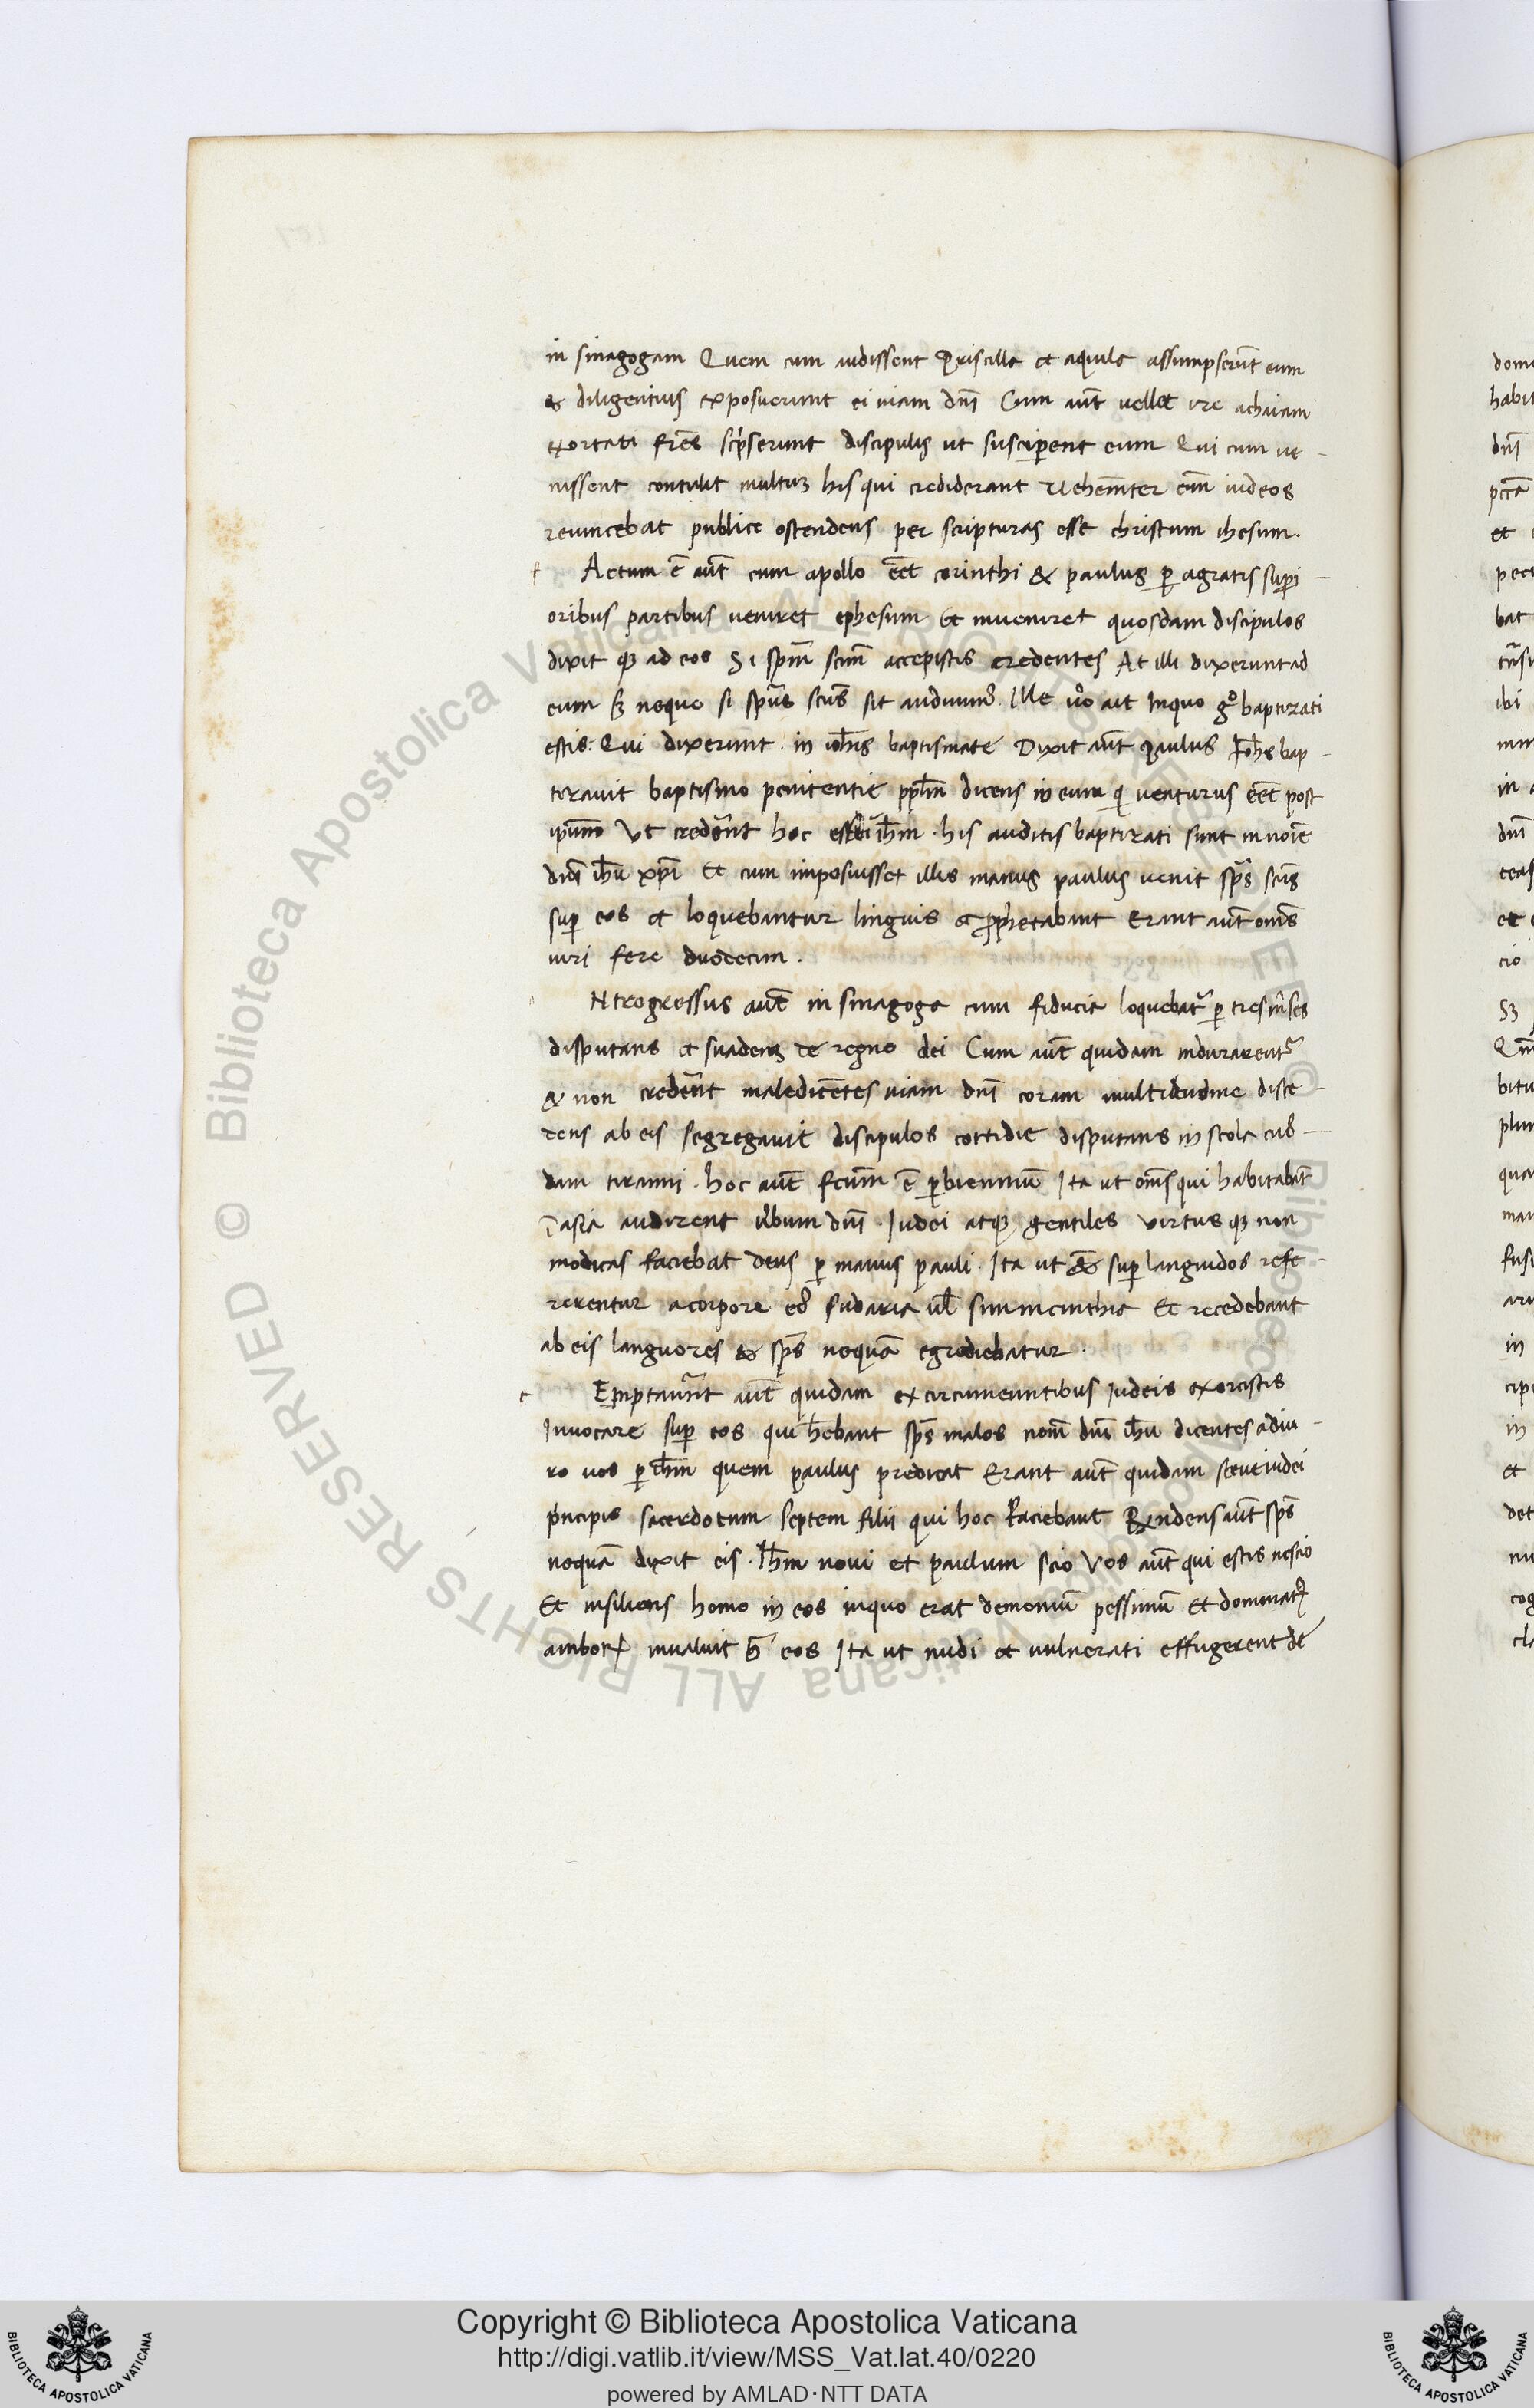 in sinagogam Quem cum audissent Priscilla et aquila assumpserūt eum
& diligentius exposuerunt ei uiam dnī Cum aūt uellet ire achaiam
exortati frēs scpserunt discipulis ut susciperent eum Qui cum ue-
nissent contulit multum his qui crediderant Uehemter enī iudeos
reuincebat publice ostendens per scripturas esse christum ihesum.
f Actum ē aūt cum apollo eēt corinthi & paulus p̱ agratis supi-
oribus partibus ueniret ephesum et inueniret quosdam discipulos
dixit qꝫ ad eos Si spm̄ scm̄ accepistis credentes At illi dixerunt ad
eum sꝫ neque si spūs scūs sit audiuim⁹. Ille uͦo ait Inquo gͦ baptizati
estis: Qui dixerunt. in iohīs baptismate Dixit aūt Paulus Iohēs bap-
tizauit baptismo penitentie pplm̄ dicens in eum qi uenturus eēt post
ipsum Ut crederent hoc est ihm̄. his auditis baptizati sunt in noīe
dnī ihū xpī Et cum imposuisset illis manus paulus uenit sps̄ scūs
sup eos et loquebantur linguis et prophetabant Erant aūt omīs
uiri fere duodecim.
Ntrogressus aūt in sinagoga cum fiducia loquebat᷑ p̱ tres mēses
disputans et suadens de regno dei Cum aūt quidam indurarent᷑
& non crederēt maledicētes uiam dnī coram multidudine disce-
dens ab eis segregauit discipulos cottidie disputans in scola cuis-
dam tiranni. hoc aūt fcum̄ ē p̱ biennium Ita ut oms̄ qui habitabāt
ī asia audirent uͥbum dnī. Iudei atqꝫ gentiles uirtus qꝫ non
modicas faciebat deus p̱ manus pauli. Ita ut & sup languidos refe-
rerentur acorpore eiꝰ sudaria ul̄ simincinthia Et recedebant
ab eis languores & sps̄ nequā egrediebatur.
t Emptauerūt aūt quidam ex circumeuntibus iudeis exorcistis
Inuocare sup eos qui hēbant sps̄ malos nom̄ dnī ihū dicentes adiu-
ro uos p̱ ihm̄ quem paulus predicat Erant aūt quidam sceue iudei
pncipis sacerdotum septem filii qui hoc faciebant Rn̄dens aūt sps̄
nequā dixit eis. Ihm̄ noui et paulum scio Uos aūt qui estis nescio
Et insiliens homo in eos inquo erat demoniū pessimū Et dominat᷑
amboꝝ inualuit ꝯ̄ eos Ita ut nudi et uulnerati effugerent de
domo
habit
dnī
et
pect
bat
ibi
in
ceas
et
cio
sꝫ
bitu
plur
qua
in
cipi
in
et
det
cog
Copyright © Biblioteca Apostolica Vaticana
http://digi.vatlib.it/view/MSS_Vat.lat.40/0220
powered by AMLAD·NTT DATA
BIBLIOTECA APOSTOLICA VATICANA
BIBLIOTECA APOSTOLICA VATICANA
© Biblioteca Apostolica Vaticana ALL RIGHTS RESERVED © Biblioteca Apostolica Vaticana ALL RIGHTS RESERVED